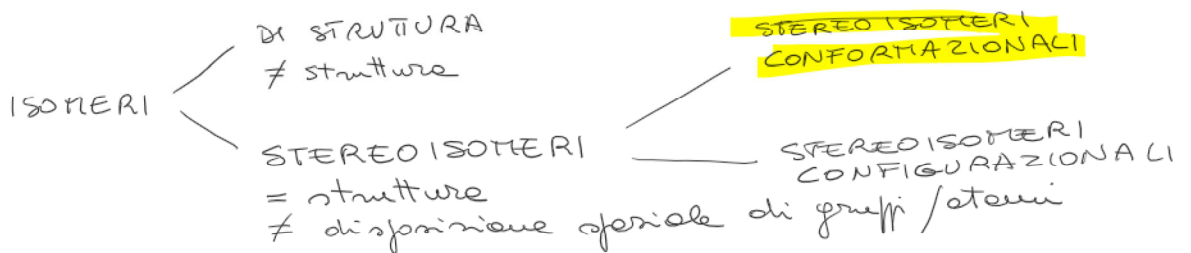 DI STRUTTURA
≠ struttura
ISOMERI
STEREOISOMERI
= struttura
≠ disposizione spaziale di gruppi / atomi
STEREOISOMERI
CONFORMAZIONALI
STEREOISOMERI
CONFIGURAZIONALI